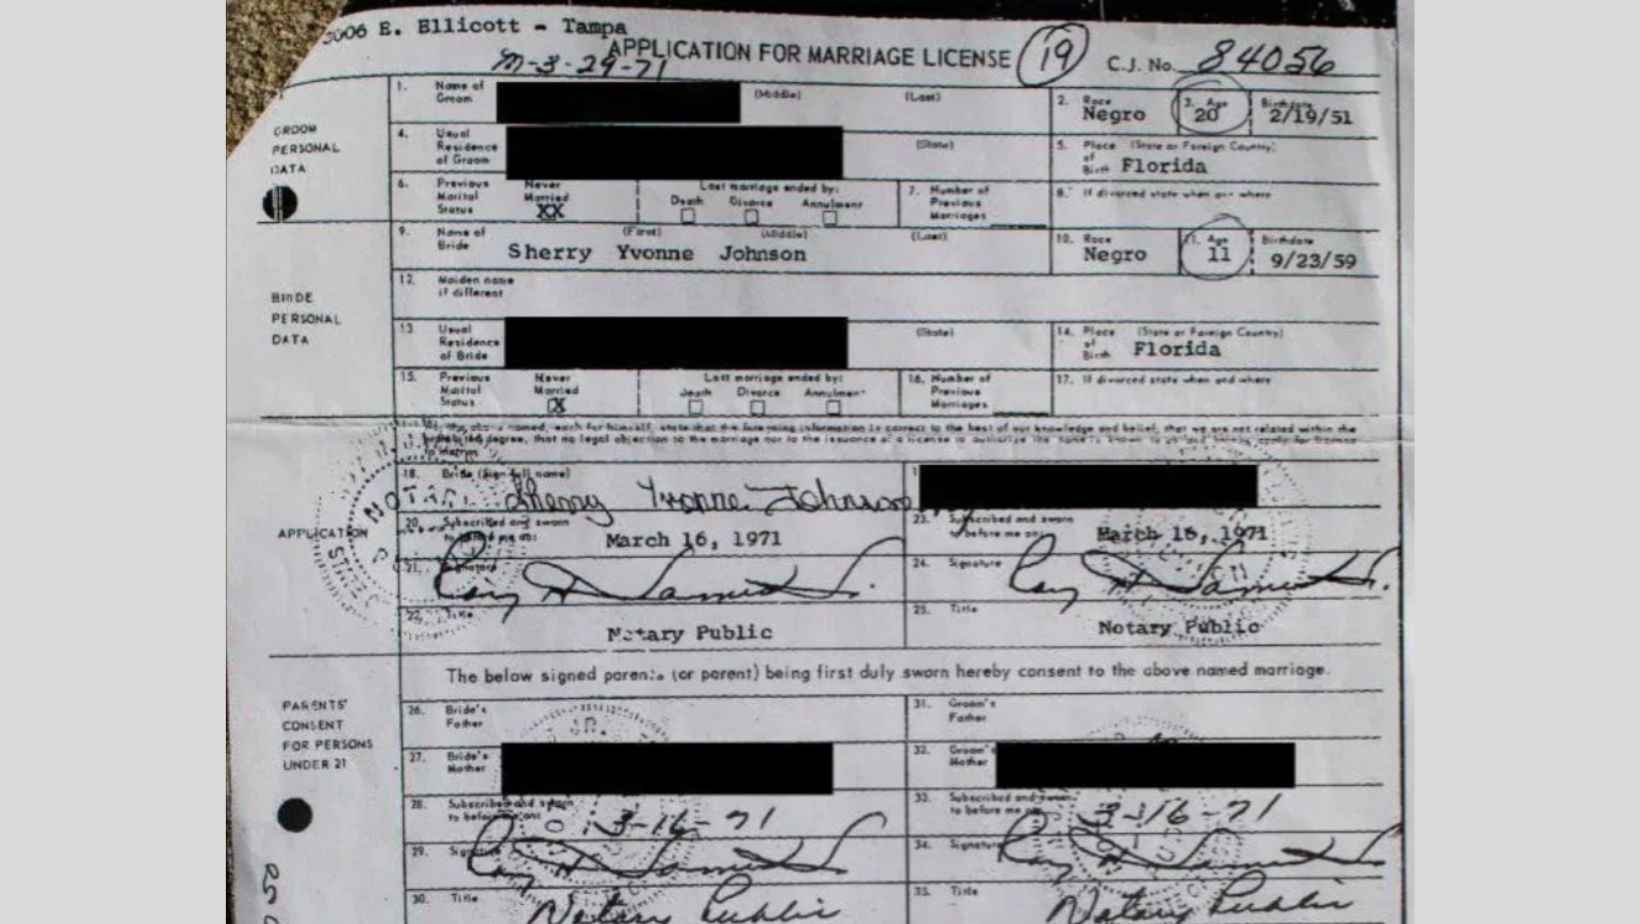 3006 E. Ellicott - Tampa
APPLICATION FOR MARRIAGE LICENSE 19 C.J. No. 84056
m-3-29-71
GROOM PERSONAL DATA
1. Name of Groom (Middle) (Last)
2. Race Negro
3. Age 20
Birthdate 2/19/51
4. Usual Residence of Groom (State)
5. Place of Birth (State or Foreign Country) Florida
6. Previous Marital Status Never Married XX
Last marriage ended by: Death Divorce Annulment
7. Number of Previous Marriages
8. If divorced state when and where
BRIDE PERSONAL DATA
9. Name of Bride (First) (Middle) (Last)
Sherry Yvonne Johnson
10. Race Negro
11. Age 11
Birthdate 9/23/59
12. Maiden name if different
13. Usual Residence of Bride (State)
14. Place of Birth (State or Foreign Country) Florida
15. Previous Marital Status Never Married X
Last marriage ended by: Death Divorce Annulment
16. Number of Previous Marriages
17. If divorced state when and where
named, each for himself, state that the foregoing information is correct to the best of our knowledge and belief, that we are not related within the
prohibited degree, that no legal objection to the marriage nor to the issuance of a license to authorize the same is known to us
APPLICATION
18. Bride (Sign full name)
Sherry Yvonne Johnson
20. Subscribed and sworn to before me on: March 16, 1971
23. Subscribed and sworn to before me on: March 16, 1971
21. Signature
24. Signature
22. Title
Notary Public
25. Title
Notary Public
The below signed parents (or parent) being first duly sworn hereby consent to the above named marriage.
PARENTS' CONSENT FOR PERSONS UNDER 21
26. Bride's Father
31. Groom's Father
27. Bride's Mother
32. Groom's Mother
28. Subscribed and sworn to before me on: 3-16-71
33. Subscribed and sworn to before me on: 3-16-71
29. Signature
34. Signature
30. Title Notary Public
35. Title Notary Public